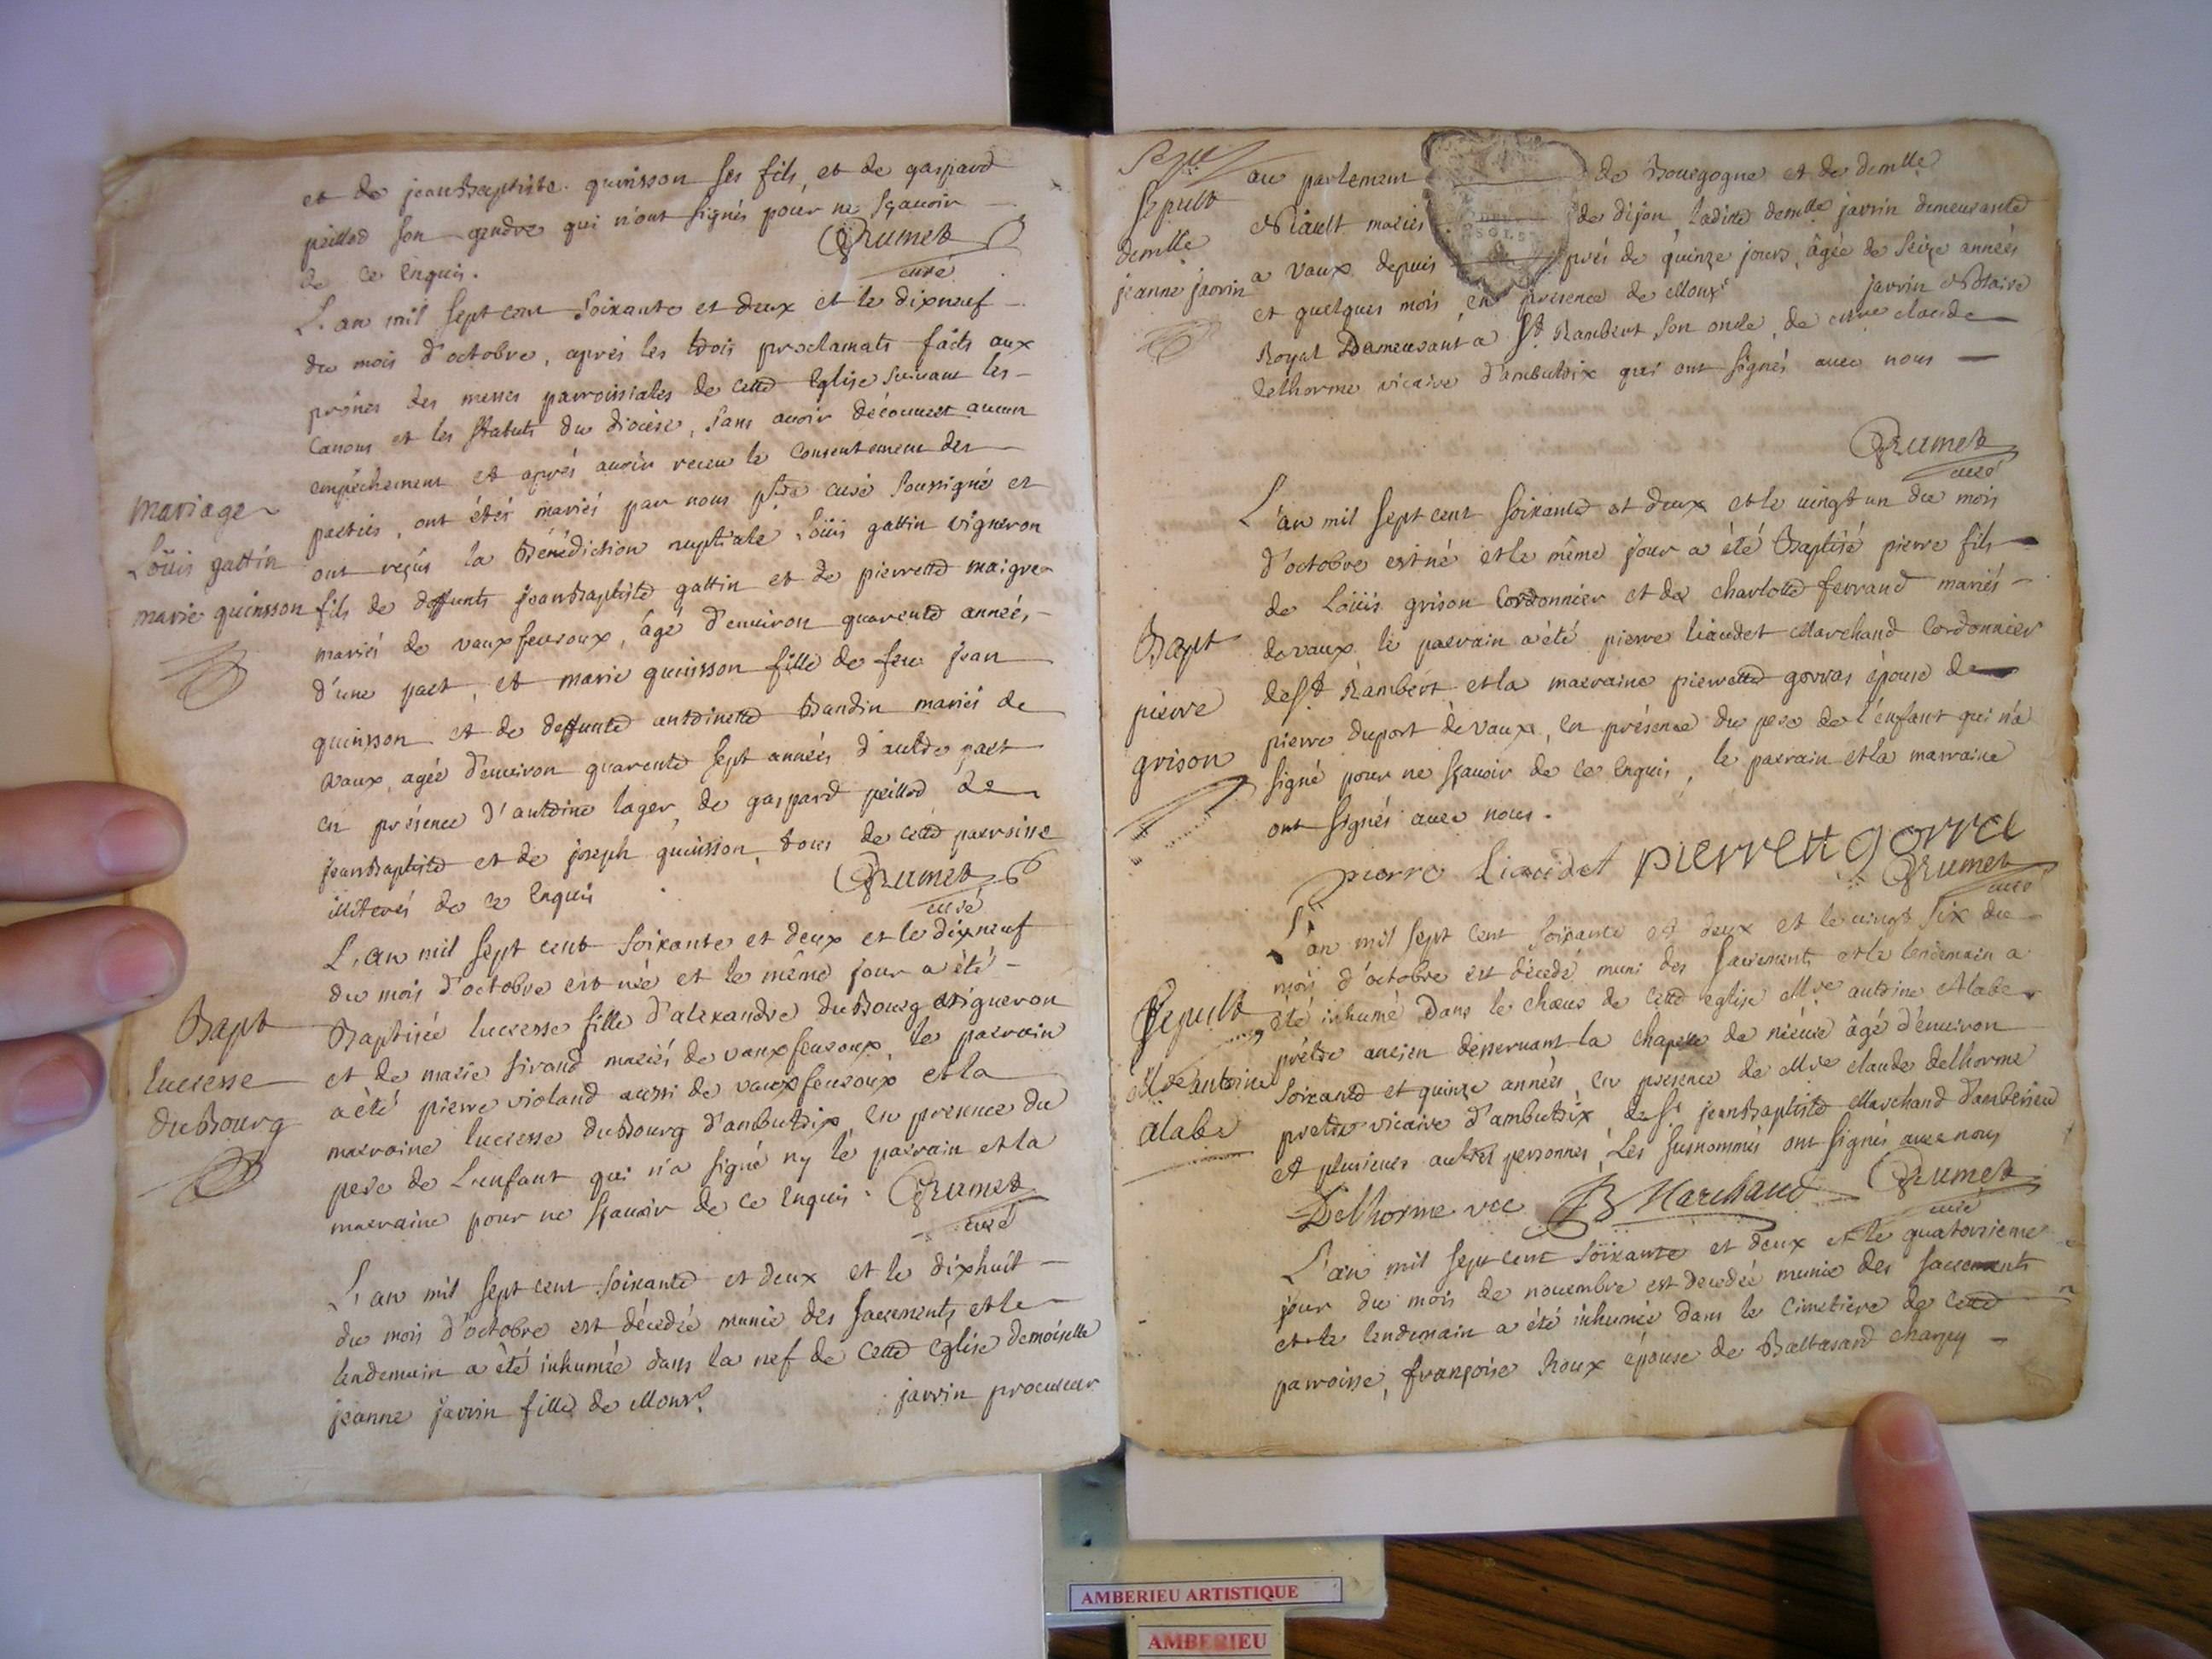 et de jean Baptiste quinsson ses fils, et de gaspard
peillod son gendre qui n'ont signés pour ne sçavoir
de ce enquis. Grumet
curé
L'an mil sept cent soixante et deux et le dixneuf
du mois d'octobre, après les trois proclamats faits aux
prônes des messes parroissiales de cette Eglise suivant les
canons et les statuts du diocèse, sans avoir découvert aucun
empêchement et après avoir receu le consentement des
parties, ont étés mariés par nous ptre curé soussigné et
ont reçus la Bénédiction nuptiale, Loüis gattin vigneron
fils de deffunts jean Baptiste gattin et de pierrette maigre
mariés de vauxfevroux, âgé d'environ quarente années,
d'une part, et marie quinsson fille de feu jean
quinsson et de deffunte antoinette Bandin mariés de
vaux, agée d'environ quarente sept années d'autre part
en présence d'antoine lager, de gaspard peillod, de
jean Baptiste et de joseph quinsson, tous de cette parroisse
illiterés de ce enquis Grumet
curé
mariage
Loüis gattin
marie quinsson
L'an mil sept cent soixante et deux et le dixneuf
du mois d'octobre est née et le même jour a été
Baptisée lucresse fille d'alexandre du Bourg vigneron
et de marie sirand mariés de vauxfevroux, le parrain
a été pierre violand aussi de vauxfevroux et la
marraine lucresse du Bourg d'ambutrix, en presence du
pere de L'enfant qui n'a signé ny le parrain et la
marraine pour ne sçavoir de ce enquis. Grumet
curé
Bapt
lucresse
du Bourg
L'an mil sept cent soixante et deux et le dixhuit
du mois d'octobre est décedée munie des sacrements, et le
lendemain a été inhumée dans la nef de cette eglise demoiselle
jeanne jarrin fille de Monsr. jarrin procureur
au parlement de Bourgogne et de demlle
Niault mariés de dijon, ladite demlle jarrin demeurante
a vaux depuis près de quinze jours, âgée de seize années
et quelques mois, en presence de Monsr jarrin Notaire
Royal Demeurant a St Rambert son oncle, de mre claude
delhorme vicaire d'ambutrix qui ont signés avec nous
Grumet
curé
Sepult
demlle
jeanne jarrin
L'an mil sept cent soixante et deux et le vingt un du mois
d'octobre est né et le même jour a été Baptisé pierre fils
de Loüis grison Cordonnier et de charlotte ferrand mariés
de vaux, le parrain a été pierre liaudet Marchand Cordonnier
de St Rambert et la marraine pierrette gorras épouse de
pierre duport de vaux, en présence du pere de l'enfant qui n'a
signé pour ne sçavoir de ce enquis, le parrain et la marraine
ont signés avec nous.
pierre liaudet pierrett gorra
Grumet
curé
Bapt
pierre
grison
L'an mil sept cent soixante et deux et le vingt six du
mois d'octobre est décedé muni des sacrements et le lendemain a
été inhumé Dans le chœur de cette eglise Mre antoine Alabe
prêtre ancien desservant la chapelle de nieure âgé d'environ
soixante et quinze années, en presence de Mre claude delhorme
pretre vicaire d'ambutrix, de Sr jean Baptiste Marchand d'amberieu
et plusieurs autres personnes, Les susnommés ont signés avec nous
Delhorme vic JB Marchand Grumet
curé
Sepult
Mre antoine
alabe
L'an mil sept cent soixante et deux et le quatorzieme
jour du mois de novembre est decedée munie des sacrements
et le lendemain a été inhumée dans le cimetiere de cette
parroisse, françoise Roux épouse de Baltasard
AMBERIEU ARTISTIQUE
AMBERIEU